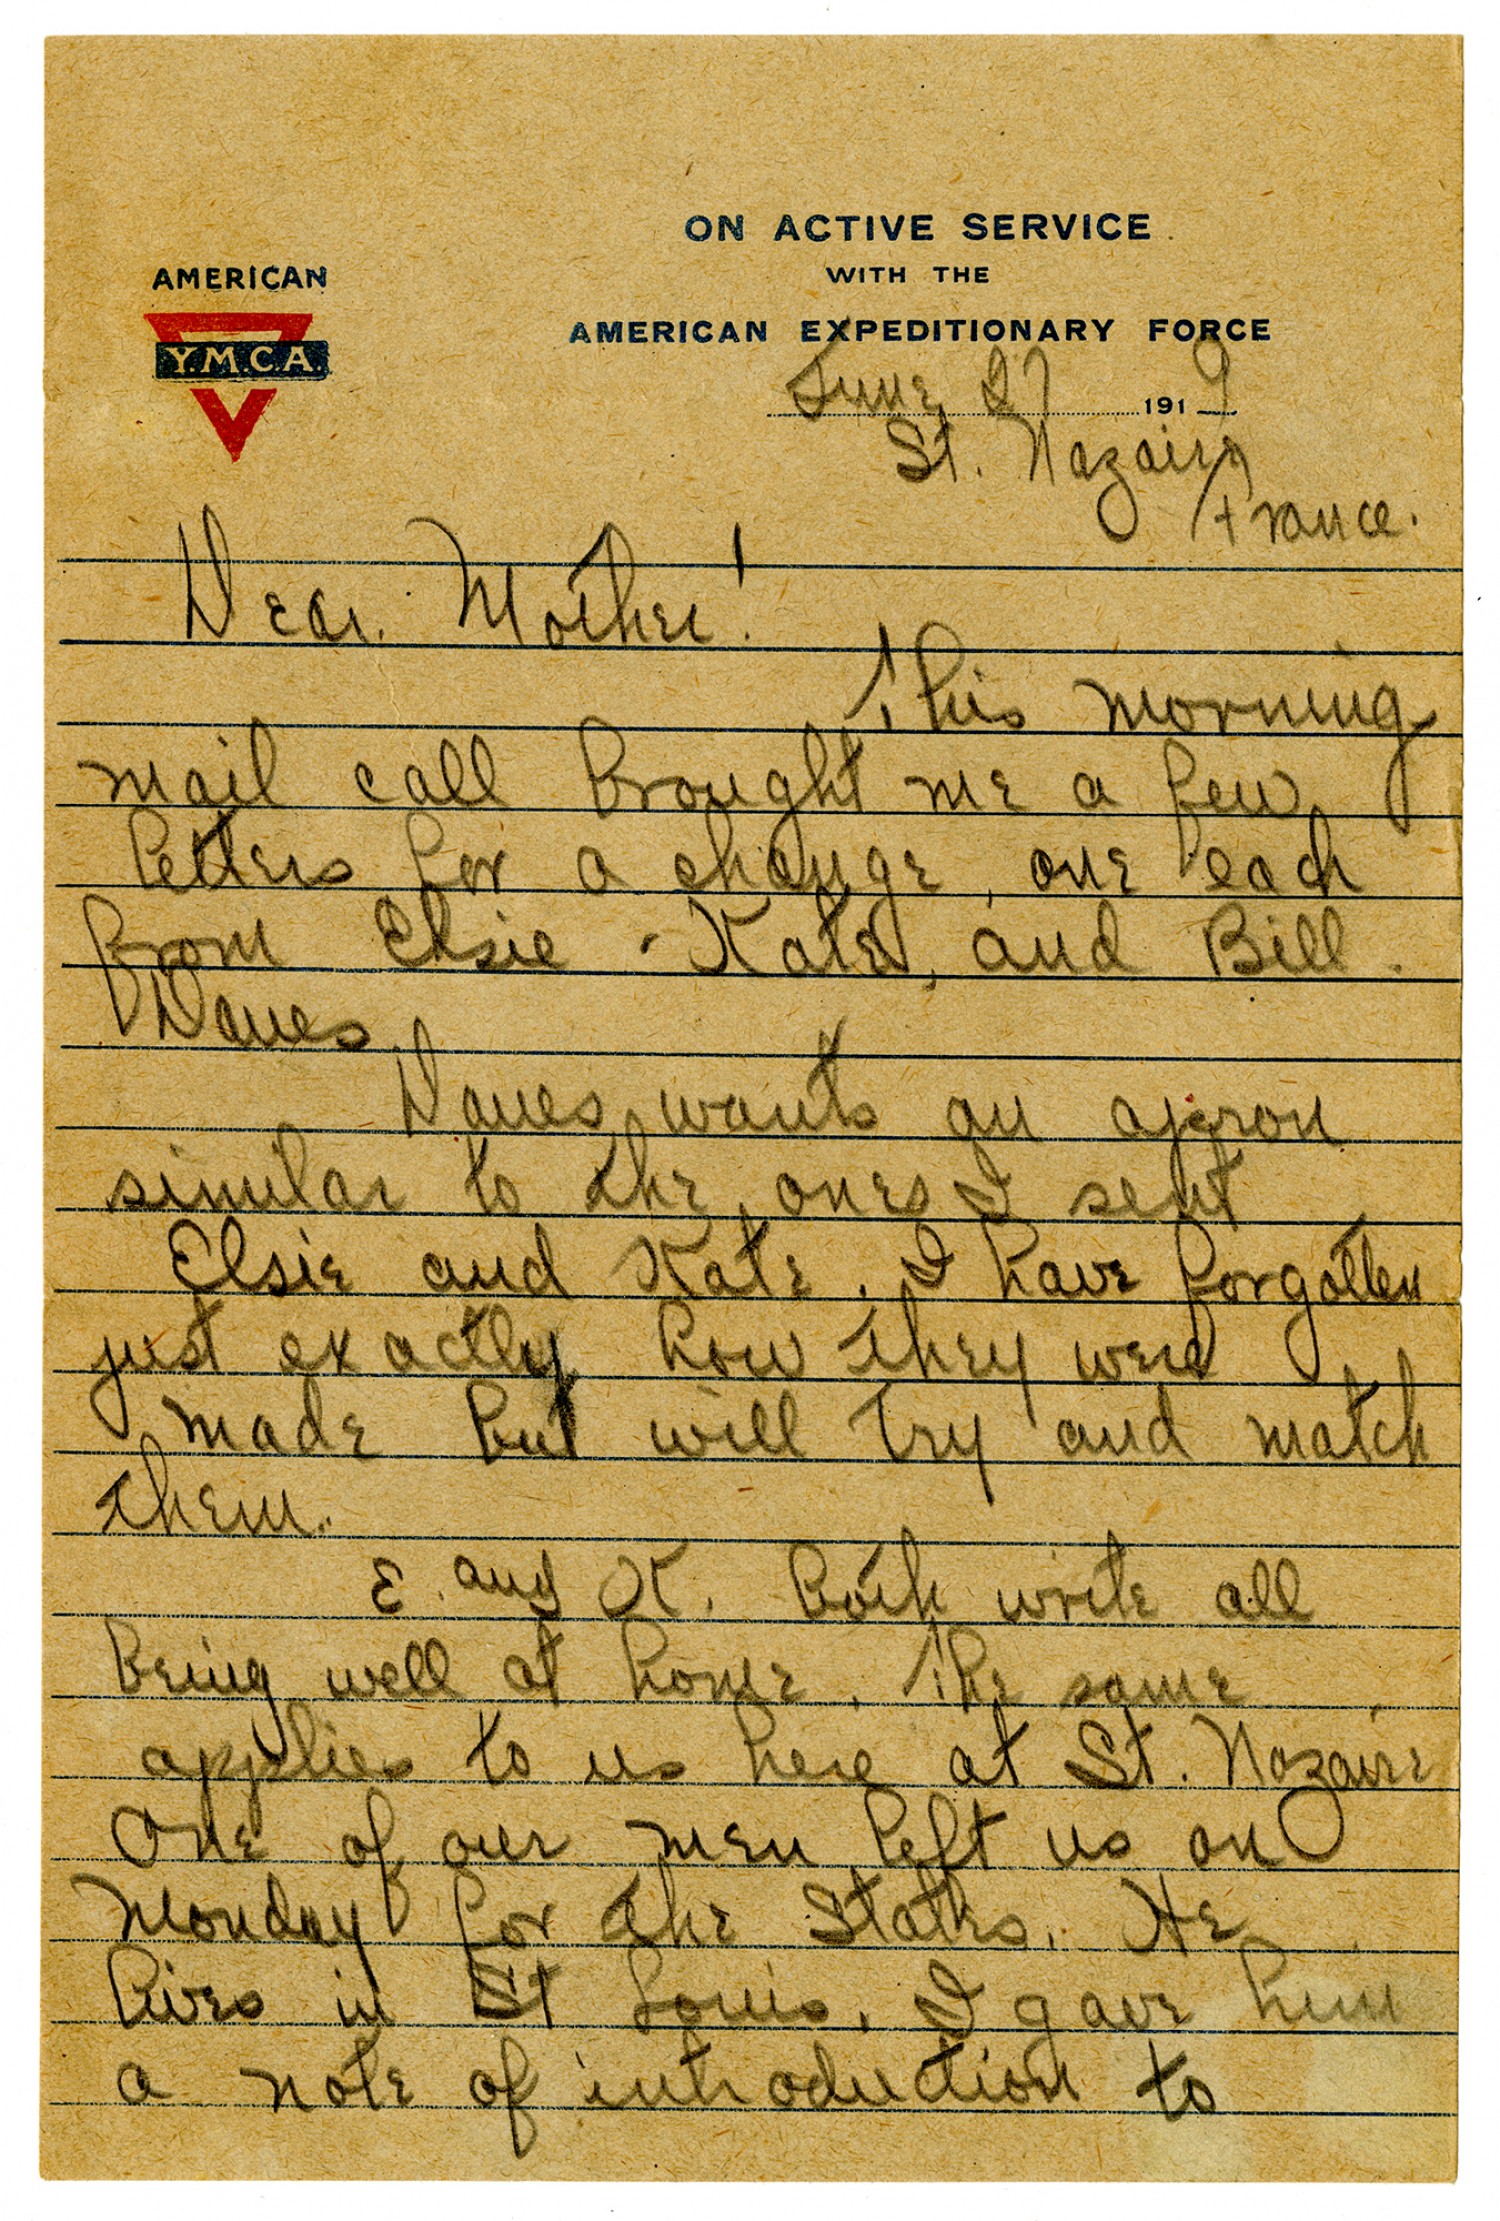 ON ACTIVE SERVICE
WITH THE
AMERICAN EXPEDITIONARY FORCE
AMERICAN
Y.M.C.A.
June 27 1919
St. Nazaire
France.
Dear Mother!
This morning
mail call brought me a few
letters for a change, one each
from Elsie - Kate, and Bill
Dawes.
Dawes wants an apron
similar to the ones I sent
Elsie and Kate. I have forgotten
just exactly how they were
made but will try and match
them.
E. and K. both write all
being well at home. The same
applies to us here at St. Nazaire
One of our men left us on
Monday for the States. He
lives in St Louis. I gave him
a note of introduction to